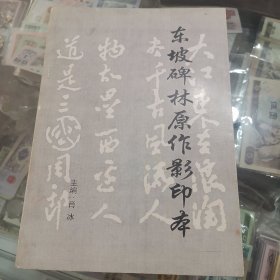 东坡碑林原作影印本
大江东去浪淘
尽千古风流人
物故垒西边人
道是三国周郎